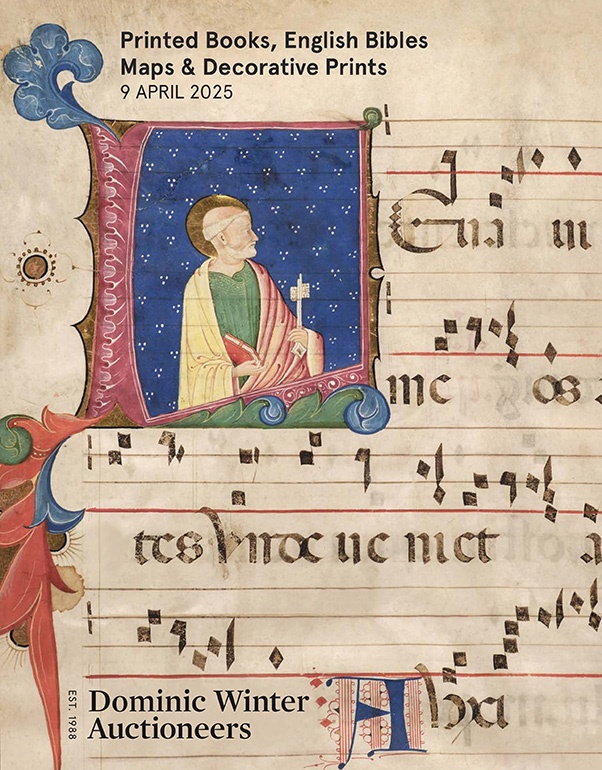 Printed Books, English Bibles
Maps & Decorative Prints
9 APRIL 2025
L Eua ui
me os
tes Vnde ue niet a
EST. 1988
Dominic Winter
Auctioneers
A Vxi